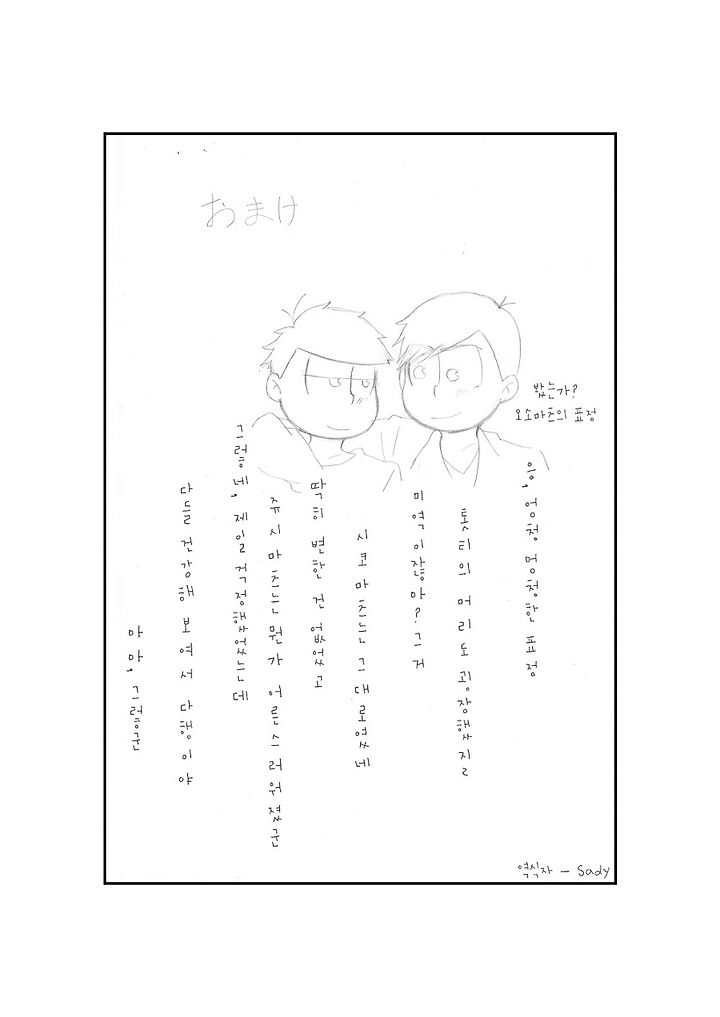 おまけ
봤는가?
오소마츠의 표정
응, 엉청 멍청한 표정
톳티의 머리도 굉장했지ㄹ
미역이잖아? 그거
시코마츠는 그대로였네
딱히 변한 건 없었고
쥬시마츠는 뭔가 어른스러워졌군
그러네, 제일 걱정했었는데
다들 건강해 보여서 다행이야
아아, 그렇군
역식자 - Sady